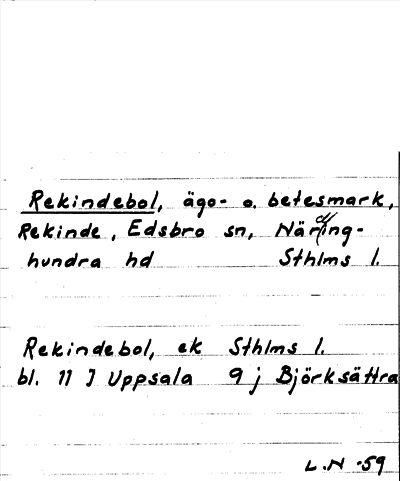 Rekindebol, ägo- o. betesmark,
Rekinde, Edsbro sn, Närding-
hundra hd Sthlms l.
Rekindebol, ek Sthlms l.
bl. 11 J Uppsala 9 j Björksättra
L.N -59